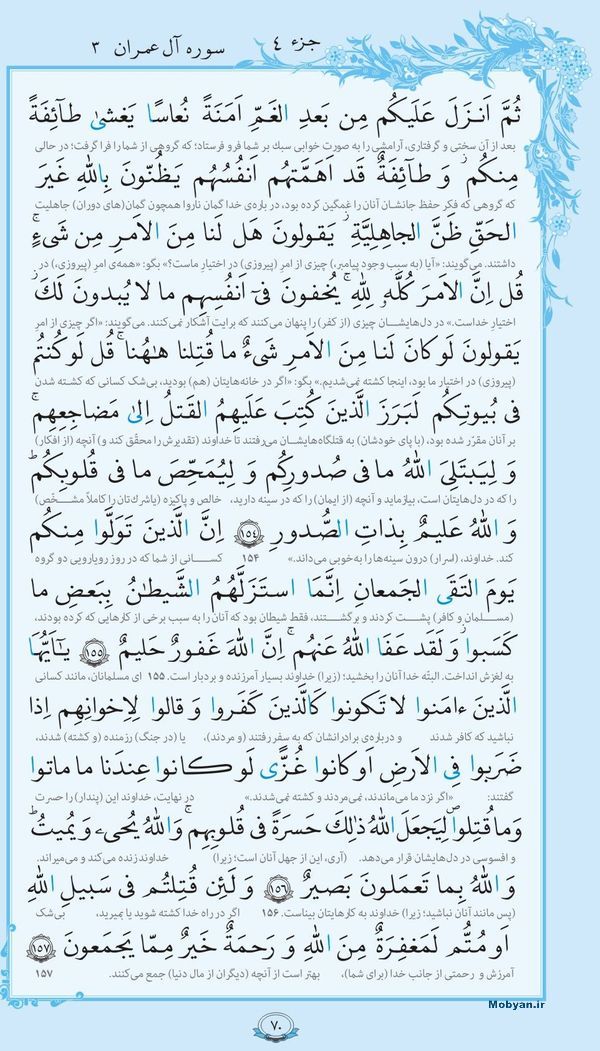 جزء ٤
سوره آل عمران ٣
ثُمَّ اَنزَلَ عَلَیکُم مِن بَعدِ الغَمِّ اَمَنَةً نُعاسًا یَغشیٰ طآئِفَةً
بعد از آن سختی و گرفتاری، آرامشی را به صورت خوابی سبك بر شما فرو فرستاد؛ که گروهی از شما را فرا گرفت؛ در حالی
مِنکُم ۖ وَ طآئِفَةٌ قَد اَهَمَّتهُم اَنفُسُهُم یَظُنّونَ بِاللهِ غَیرَ
که گروهی که فکر حفظ جانشان آنان را غمگین کرده بود، درباره‌ی خدا گمان ناروا همچون گمان(های دوران) جاهلیت
الحَقِّ ظَنَّ الجاهِلِیَّةِ ۖ یَقولونَ هَل لَنا مِنَ الاَمرِ مِن شَیءٍ ۗ
داشتند. می‌گویند: «آیا (به سبب وجود پیامبر،) چیزی از امرِ (پیروزی) در اختیارِ ماست؟» بگو: «همه‌ی امرِ (پیروزی،) در
قُل اِنَّ الاَمرَ کُلَّه‌ُ لِلّٰهِ ۗ یُخفونَ فی اَنفُسِهِم ما لا یُبدونَ لَكَ ۖ
اختیارِ خداست.» در دل‌هایشان چیزی (از کفر) را پنهان می‌کنند که برایت آشکار نمی‌کنند. می‌گویند: «اگر چیزی از امرِ
یَقولونَ لَو کانَ لَنا مِنَ الاَمرِ شَیءٌ ما قُتِلنا هٰهُنا ۗ قُل لَو کُنتُم
(پیروزی) در اختیار ما بود، اینجا کشته نمی‌شدیم.» بگو: «اگر در خانه‌هایتان (هم) بودید، بی‌شک کسانی که کشته شدن
فی بُیوتِکُم لَبَرَزَ الَّذینَ کُتِبَ عَلَیهِمُ القَتلُ اِلیٰ مَضاجِعِهِم ۖ
بر آنان مقرّر شده بود، (با پای خودشان) به قتلگاه‌هایشان می‌رفتند تا خداوند (تقدیرش را محقّق کند و) آنچه (از افکار)
وَ لِیَبتَلِیَ اللهُ ما فی صُدورِکُم وَ لِیُمَحِّصَ ما فی قُلوبِکُم ۗ
را که در دل‌هایتان است، بیازماید و آنچه (از ایمان) را که در سینه دارید، خالص و پاکیزه (یا شرك‌تان را کاملاً مشخّص)
وَ اللهُ عَلیمٌ بِذاتِ الصُّدورِ ﴿١٥٤﴾ اِنَّ الَّذینَ تَوَلَّوا مِنکُم
کند. خداوند، (اسرارِ) درون سینه‌ها را به‌خوبی می‌داند.» ١٥٤ کسانی از شما که در روز رویارویی دو گروه
یَومَ التَقَی الجَمعانِ اِنَّمَا استَزَلَّهُمُ الشَّیطٰنُ بِبَعضِ ما
(مسلمان و کافر) پشت کردند و برگشتند، فقط شیطان بود که آنان را به سبب برخی از کارهایی که کرده بودند،
کَسَبوا ۖ وَ لَقَد عَفَا اللهُ عَنهُم ۗ اِنَّ اللهَ غَفورٌ حَلیمٌ ﴿١٥٥﴾ یٰٓاَیُّهَا
به لغزش انداخت. البتّه خدا آنان را بخشید؛ (زیرا) خداوند بسیار آمرزنده و بردبار است. ١٥٥ ای مسلمانان، مانند کسانی
الَّذینَ ءامَنوا لا تَکونوا کَالَّذینَ کَفَروا وَ قالوا لِاِخوانِهِم اِذا
نباشید که کافر شدند و درباره‌ی برادرانشان که به سفر رفتند (و مردند)، یا (در جنگ) رزمنده (و کشته) شدند،
ضَرَبوا فِی الاَرضِ اَو کانوا غُزًّی لَو کانوا عِندَنا ما ماتوا
گفتند: «اگر نزد ما می‌ماندند، نمی‌مردند و کشته نمی‌شدند.» در نهایت، خداوند این (پندار) را حسرت
وَما قُتِلوا لِیَجعَلَ اللهُ ذٰلِكَ حَسرَةً فی قُلوبِهِم ۗ وَاللهُ یُحیی وَ یُمیتُ ۗ
و افسوسی در دل‌هایشان قرار می‌دهد. (آری، این از جهل آنان است؛ زیرا) خداوند زنده می‌کند و می‌میراند.
وَ اللهُ بِما تَعمَلونَ بَصیرٌ ﴿١٥٦﴾ وَ لَئِن قُتِلتُم فی سَبیلِ اللهِ
(پس مانند آنان نباشید؛ زیرا) خداوند به کارهایتان بیناست. ١٥٦ اگر در راه خدا کشته شوید یا بمیرید، بی‌شک
اَو مُتُّم لَمَغفِرَةٌ مِنَ اللهِ وَ رَحمَةٌ خَیرٌ مِمّا یَجمَعونَ ﴿١٥٧﴾
آمرزش و رحمتی از جانب خدا (برای شما)، بهتر است از آنچه (دیگران از مال دنیا) جمع می‌کنند. ١٥٧
٧٠
Mobyan.ir